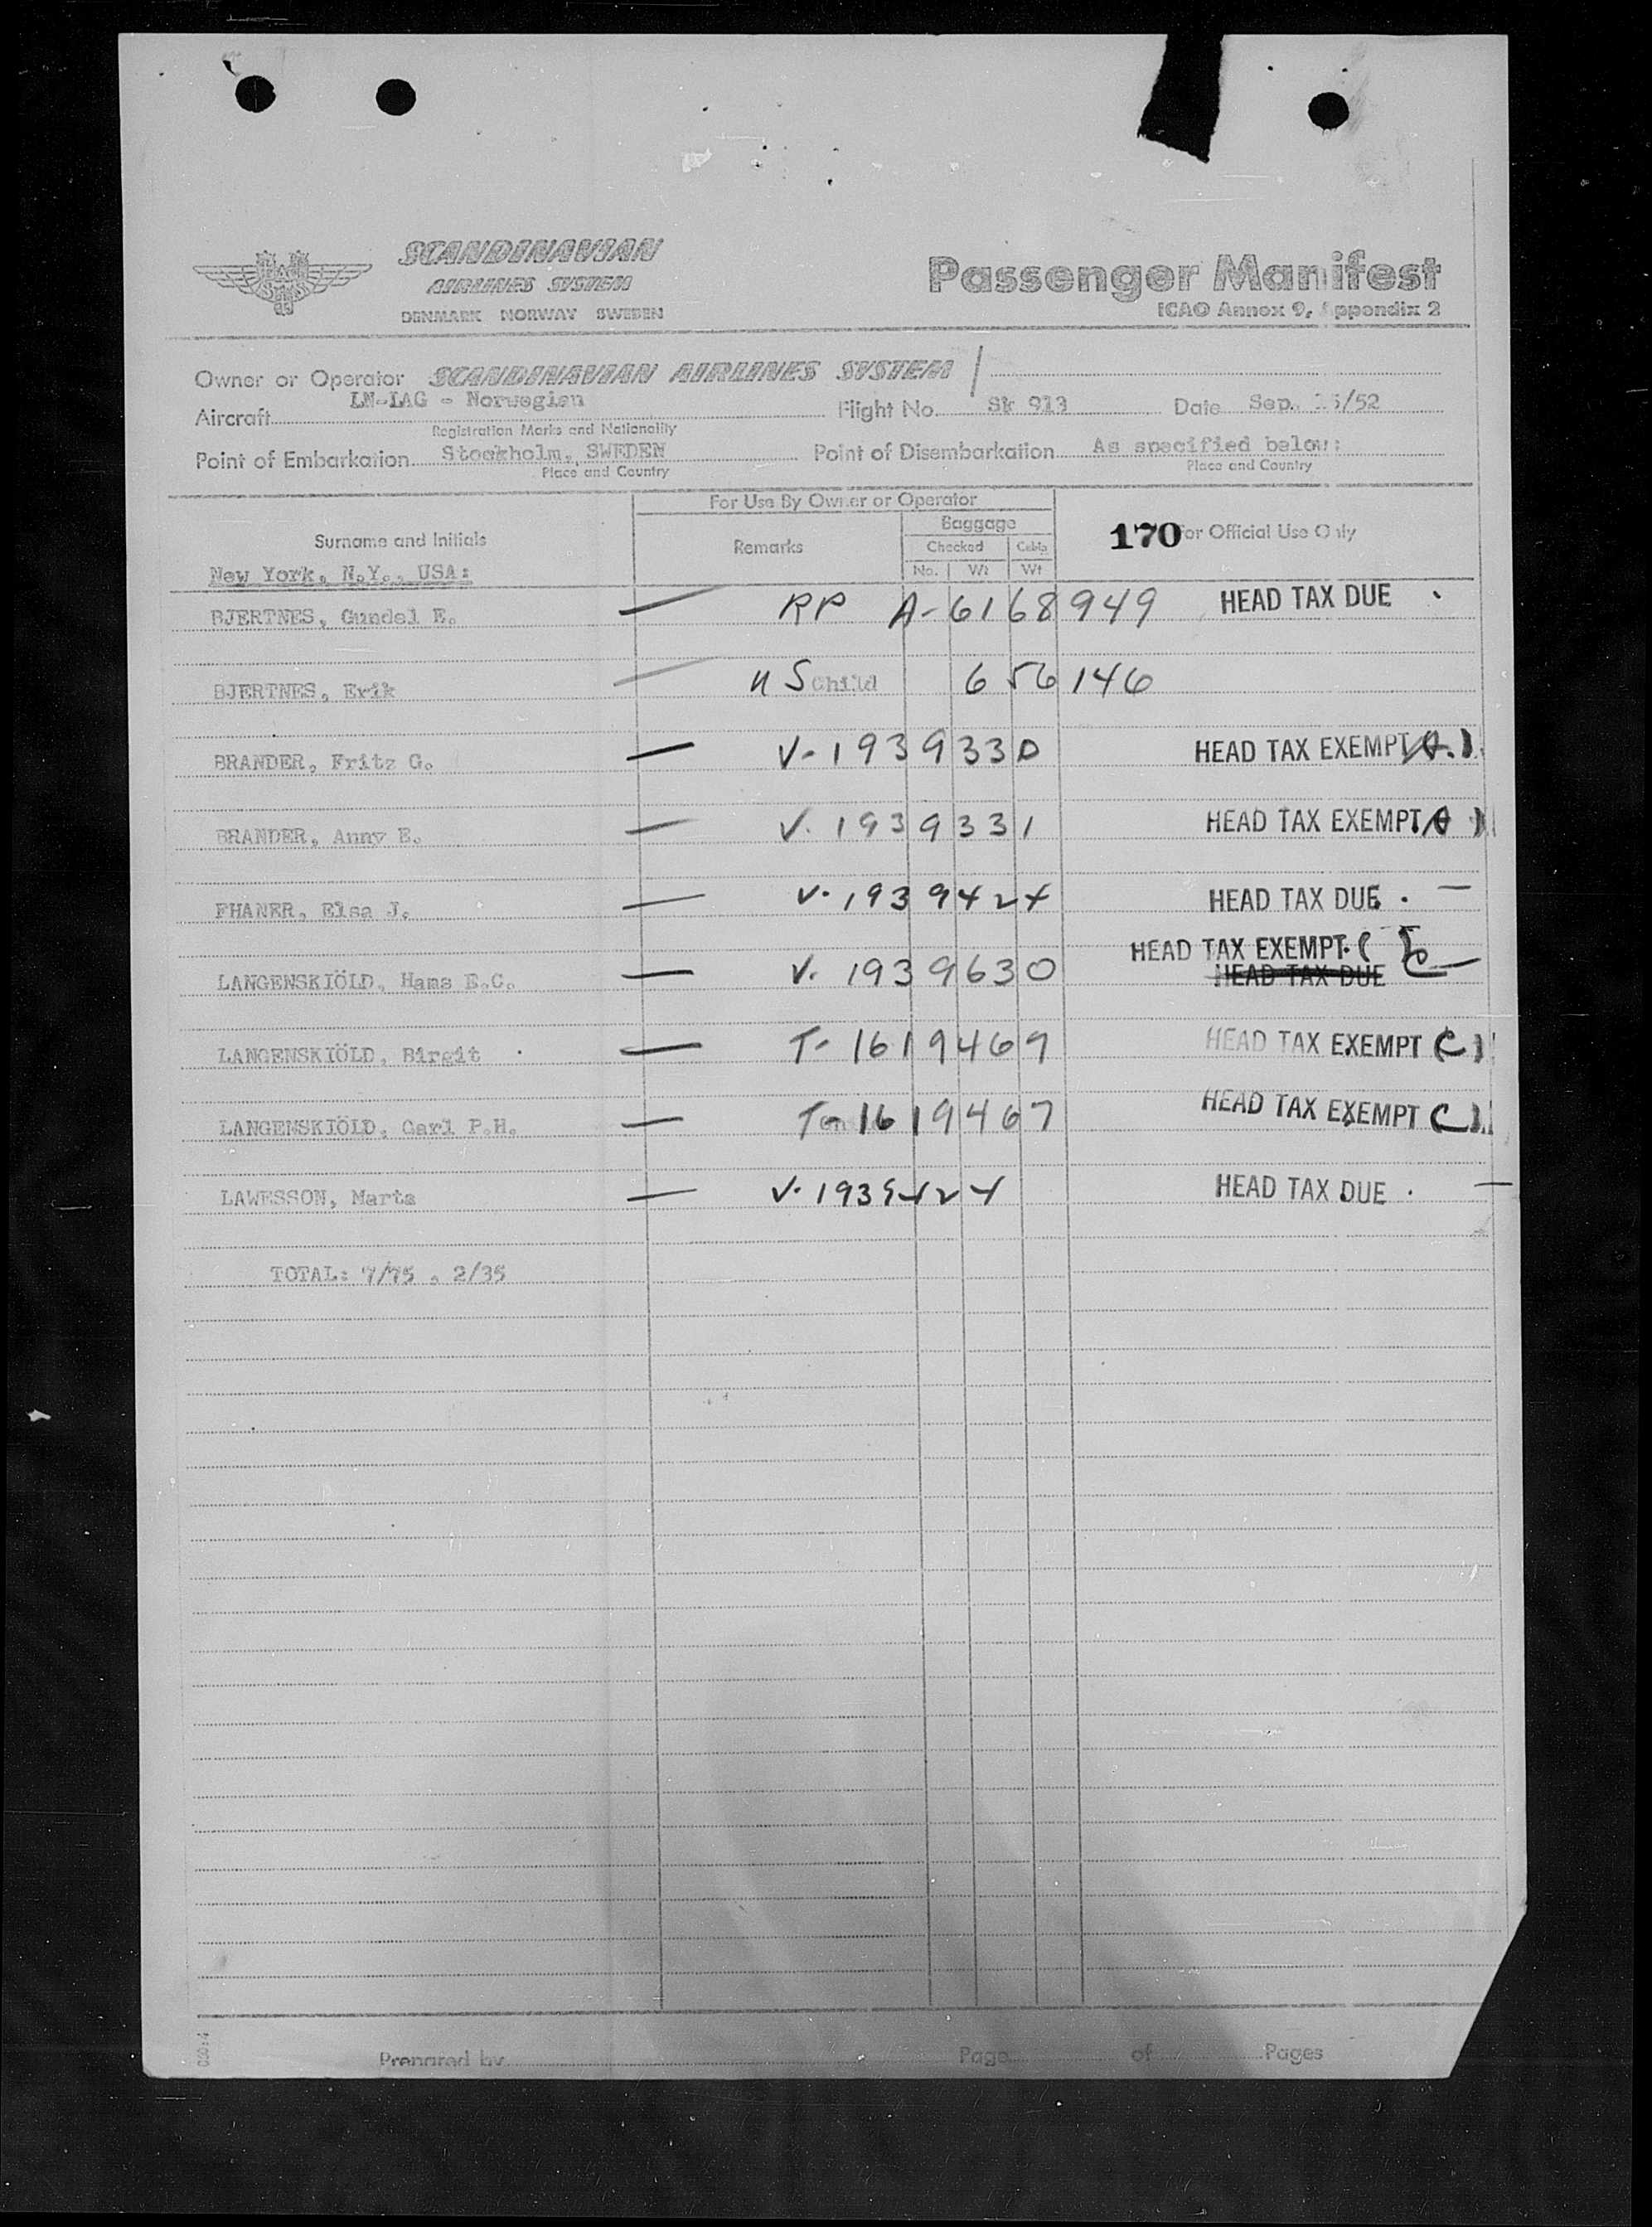 SCANDINAVIAN
AIRLINES SYSTEM
DENMARK NORWAY SWEDEN
Passenger Manifest
ICAO Annex 9, Appendix 2
Owner or Operator SCANDINAVIAN AIRLINES SYSTEM
Aircraft LN-LAG - Norwegian Flight No. Sk 913 Date Sep. 15/52
Registration Marks and Nationality
Point of Embarkation Stockholm, SWEDEN Point of Disembarkation As specified below:
Place and Country Place and Country
For Use By Owner or Operator
Surname and Initials Remarks Baggage 170 For Official Use Only
Checked Cabin
No. Wt Wt
New York, N.Y., USA:
BJERTNES, Gundel E. — RP A-6168949 HEAD TAX DUE
BJERTNES, Erik — U S Child 656146
BRANDER, Fritz G. — V-1939330 HEAD TAX EXEMPT
BRANDER, Anny E. — V. 1939331 HEAD TAX EXEMPT
FHANER, Elsa J. — V. 1939424 HEAD TAX DUE. —
HEAD TAX EXEMPT. (
LANGENSKIÖLD, Hans E.C. — V. 1939630 HEAD TAX DUE C —
LANGENSKIÖLD, Birgit — T- 1619469 HEAD TAX EXEMPT (C)
LANGENSKIÖLD, Carl P.H. — T- 1619467 HEAD TAX EXEMPT C).
LAWESSON, Marta — V. 1939424 HEAD TAX DUE . —
TOTAL: 7/75 , 2/35
Prepared by Page of Pages